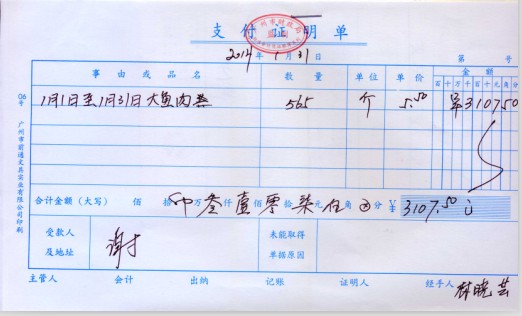 支付证明单
2014年1月31日 第 号
事由或品名 数量 单位 单价 金额
百十万千百十元角分
1月1日至1月31日大鱼肉 565 个 5.50 3107.50
合计金额(大写) 佰 拾 万叁仟壹佰零拾柒元伍角 分 ¥3107.50
受款人及地址 谢才
未能取得单据原因
主管人 会计 出纳 记账 证明人 经手人 林晓芸
06号 广州市前通文具实业有限公司印刷